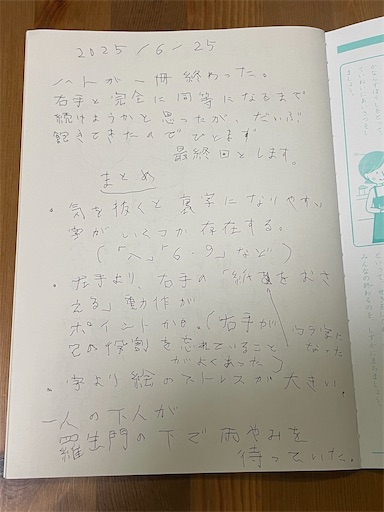 2025/6/25
ノートが一冊終わった。
右手と完全に同等になるまで
続けようかと思ったが、だいぶ
飽きてきたのでひとまず
最終回とします。
まとめ
・気を抜くと裏字になりやすい
字がいくつか存在する。
(「入」「6・9」など)
・左手より、右手の「紙をおさ
える」動作が
ポイントかも。(右手が
その役割を忘れていること
がよくあった)
鏡文字に
なった
・字より絵のストレスが大きい。
一人の下人が
羅生門の下で雨やみを
待っていた。